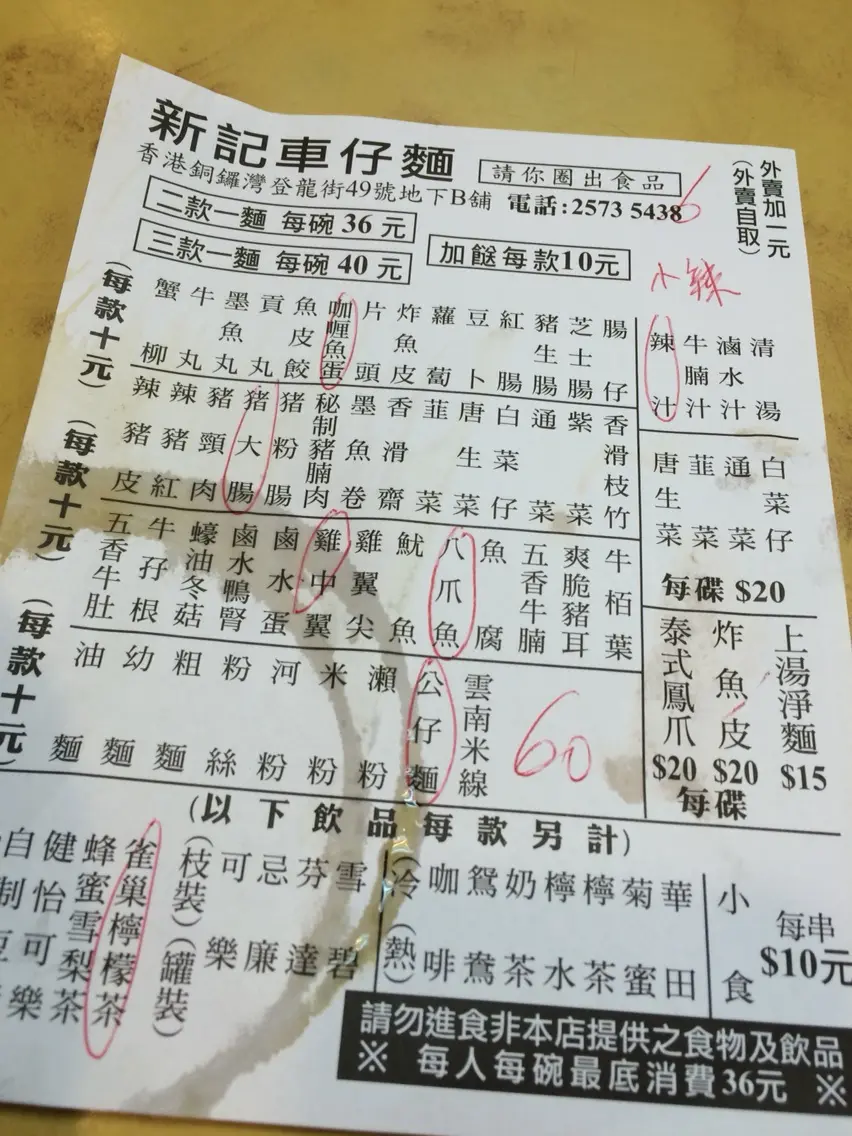 新記車仔麵
請你圈出食品
外賣加一元
(外賣自取)
香港銅鑼灣登龍街49號地下B舖 電話:2573 5438
6
二款一麵 每碗 36 元
三款一麵 每碗 40 元
加餸每款10元
小辣
(每款十元)
蟹柳
牛丸
墨魚丸
貢丸
魚皮餃
咖喱魚蛋
片頭
炸魚皮
蘿蔔
豆卜
紅腸
豬生腸
芝士腸
腸仔
辣汁
牛腩汁
滷水汁
清湯
(每款十元)
辣豬皮
辣豬紅
豬頸肉
豬大腸
豬粉腸
秘制豬腩肉
墨魚卷
香滑齋
韮菜
唐生菜
白菜仔
通菜
紫菜
香滑枝竹
唐生菜
韮菜
通菜
白菜仔
每碟 $20
(每款十元)
五香牛肚
牛孖根
蠔油冬菇
鹵水鴨腎
鹵水蛋
雞中翼
雞翼尖
魷魚
八爪魚
魚腐
五香牛腩
爽脆豬耳
牛栢葉
泰式鳳爪 $20
炸魚皮 $20
每碟
上湯淨麵 $15
油麵
幼麵
粗麵
粉絲
河粉
米粉
瀨粉
公仔麵
雲南米線
60
(以下飲品每款另計)
健怡可樂
蜂蜜雪梨茶
雀巢檸檬茶
(枝裝)
(罐裝)
可樂
忌廉
芬達
雪碧
(冷)
(熱)
咖啡
鴛鴦
奶茶
檸水
檸茶
菊蜜
華田
小食
每串
$10元
請勿進食非本店提供之食物及飲品
※ 每人每碗最底消費36元 ※